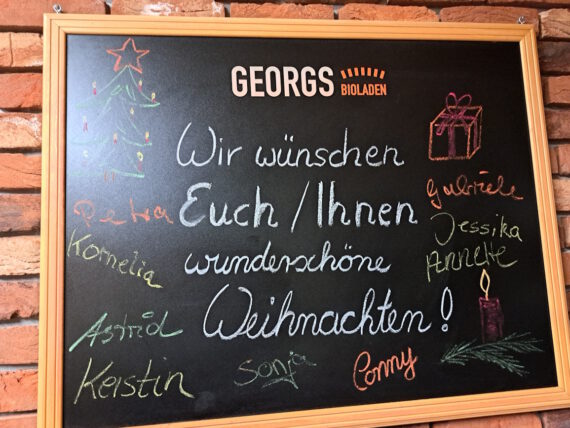 GEORGS BIOLADEN
Wir wünschen
Euch / Ihnen
wunderschöne
Weihnachten!
Petra
Kornelia
Astrid
Kerstin
Sonja
Conny
Gabriele
Jessika
Annette